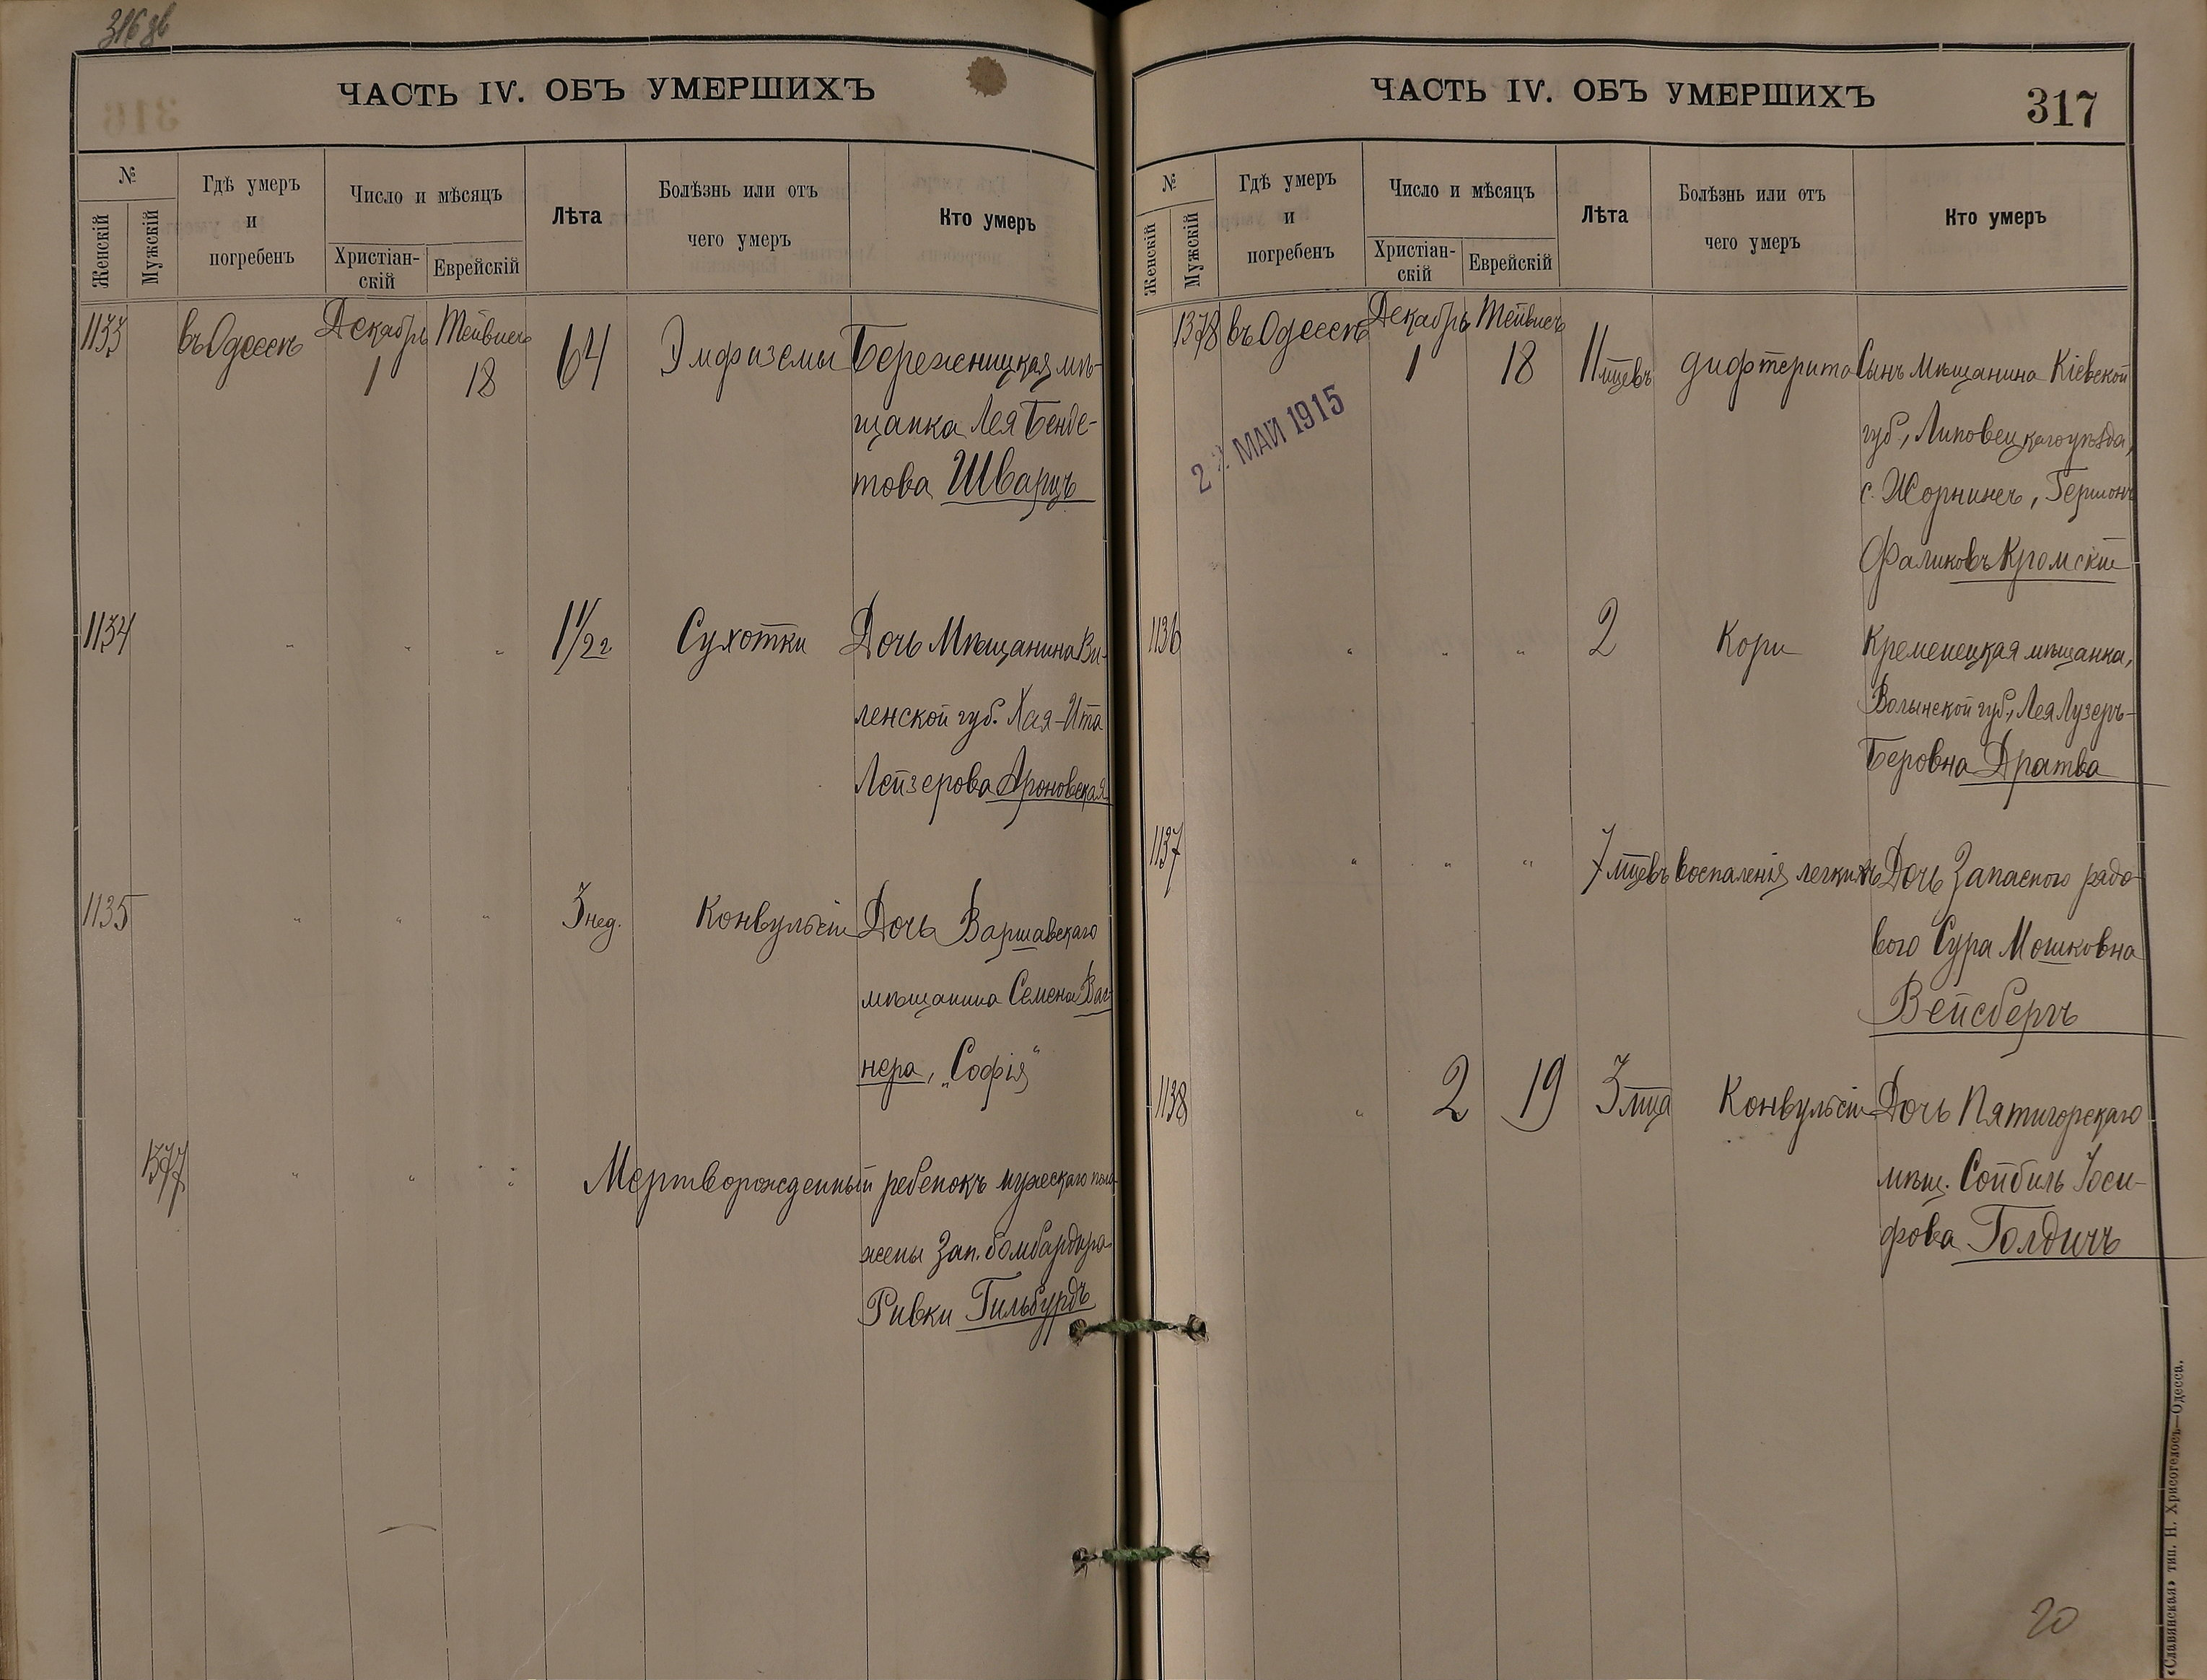 316 об
ЧАСТЬ IV. ОБЪ УМЕРШИХЪ
№
Женскій
Мужскій
Гдѣ умеръ
и
погребенъ
Число и мѣсяцъ
Христіан-
скій
Еврейскій
Лѣта
Болѣзнь или отъ
чего умеръ
Кто умеръ
1133 въ Одессѣ Декабрь 1 Тейвисъ 18 64 Эмфиземы Бережницкая мѣ-
щанка Лея Бенде-
това Шварцъ
1134 " " " 1 1/2 г. Сухотки Дочь Мѣщанина Ви-
ленской губ. Хая-Ита
Лейзерова Ароновская
1135 " " " 3 нед. Конвульсіи Дочь Варшавскаго
мѣщанина Семена Ваг
нера, „Софія"
1377 " " " Мертворожденный ребенокъ мужескаго пола
жены Зап. бомбардира
Ривки Гильбурдъ
ЧАСТЬ IV. ОБЪ УМЕРШИХЪ
317
№
Женскій
Мужскій
Гдѣ умеръ
и
погребенъ
Число и мѣсяцъ
Христіан-
скій
Еврейскій
Лѣта
Болѣзнь или отъ
чего умеръ
Кто умеръ
1378 въ Одессѣ Декабрь 1 Тейвисъ 18 11 мцевъ дифтерита Сынъ Мѣщанина Кіевской
губ., Липовецкаго уѣзда,
с. Жорнище, Гершонъ
Фаликовъ Кромскій
МАЙ 1915
1136 " " " 2 Кори Кременецкая мѣщанка,
Волынской губ., Лея Лузеръ-
Беровна Дратва
1137 " " " 7 мцевъ воспаленія легкихъ Дочь Запасного рядо-
вого Сура Мошковна
Вейсбергъ
1138 " 2 19 3 мца Конвульсіи Дочь Пятигорскаго
мѣщ. Сойбиль Іоси-
фова Голдичъ
20
«Славянская» тип. Н. Хрисогелосъ—Одесса.